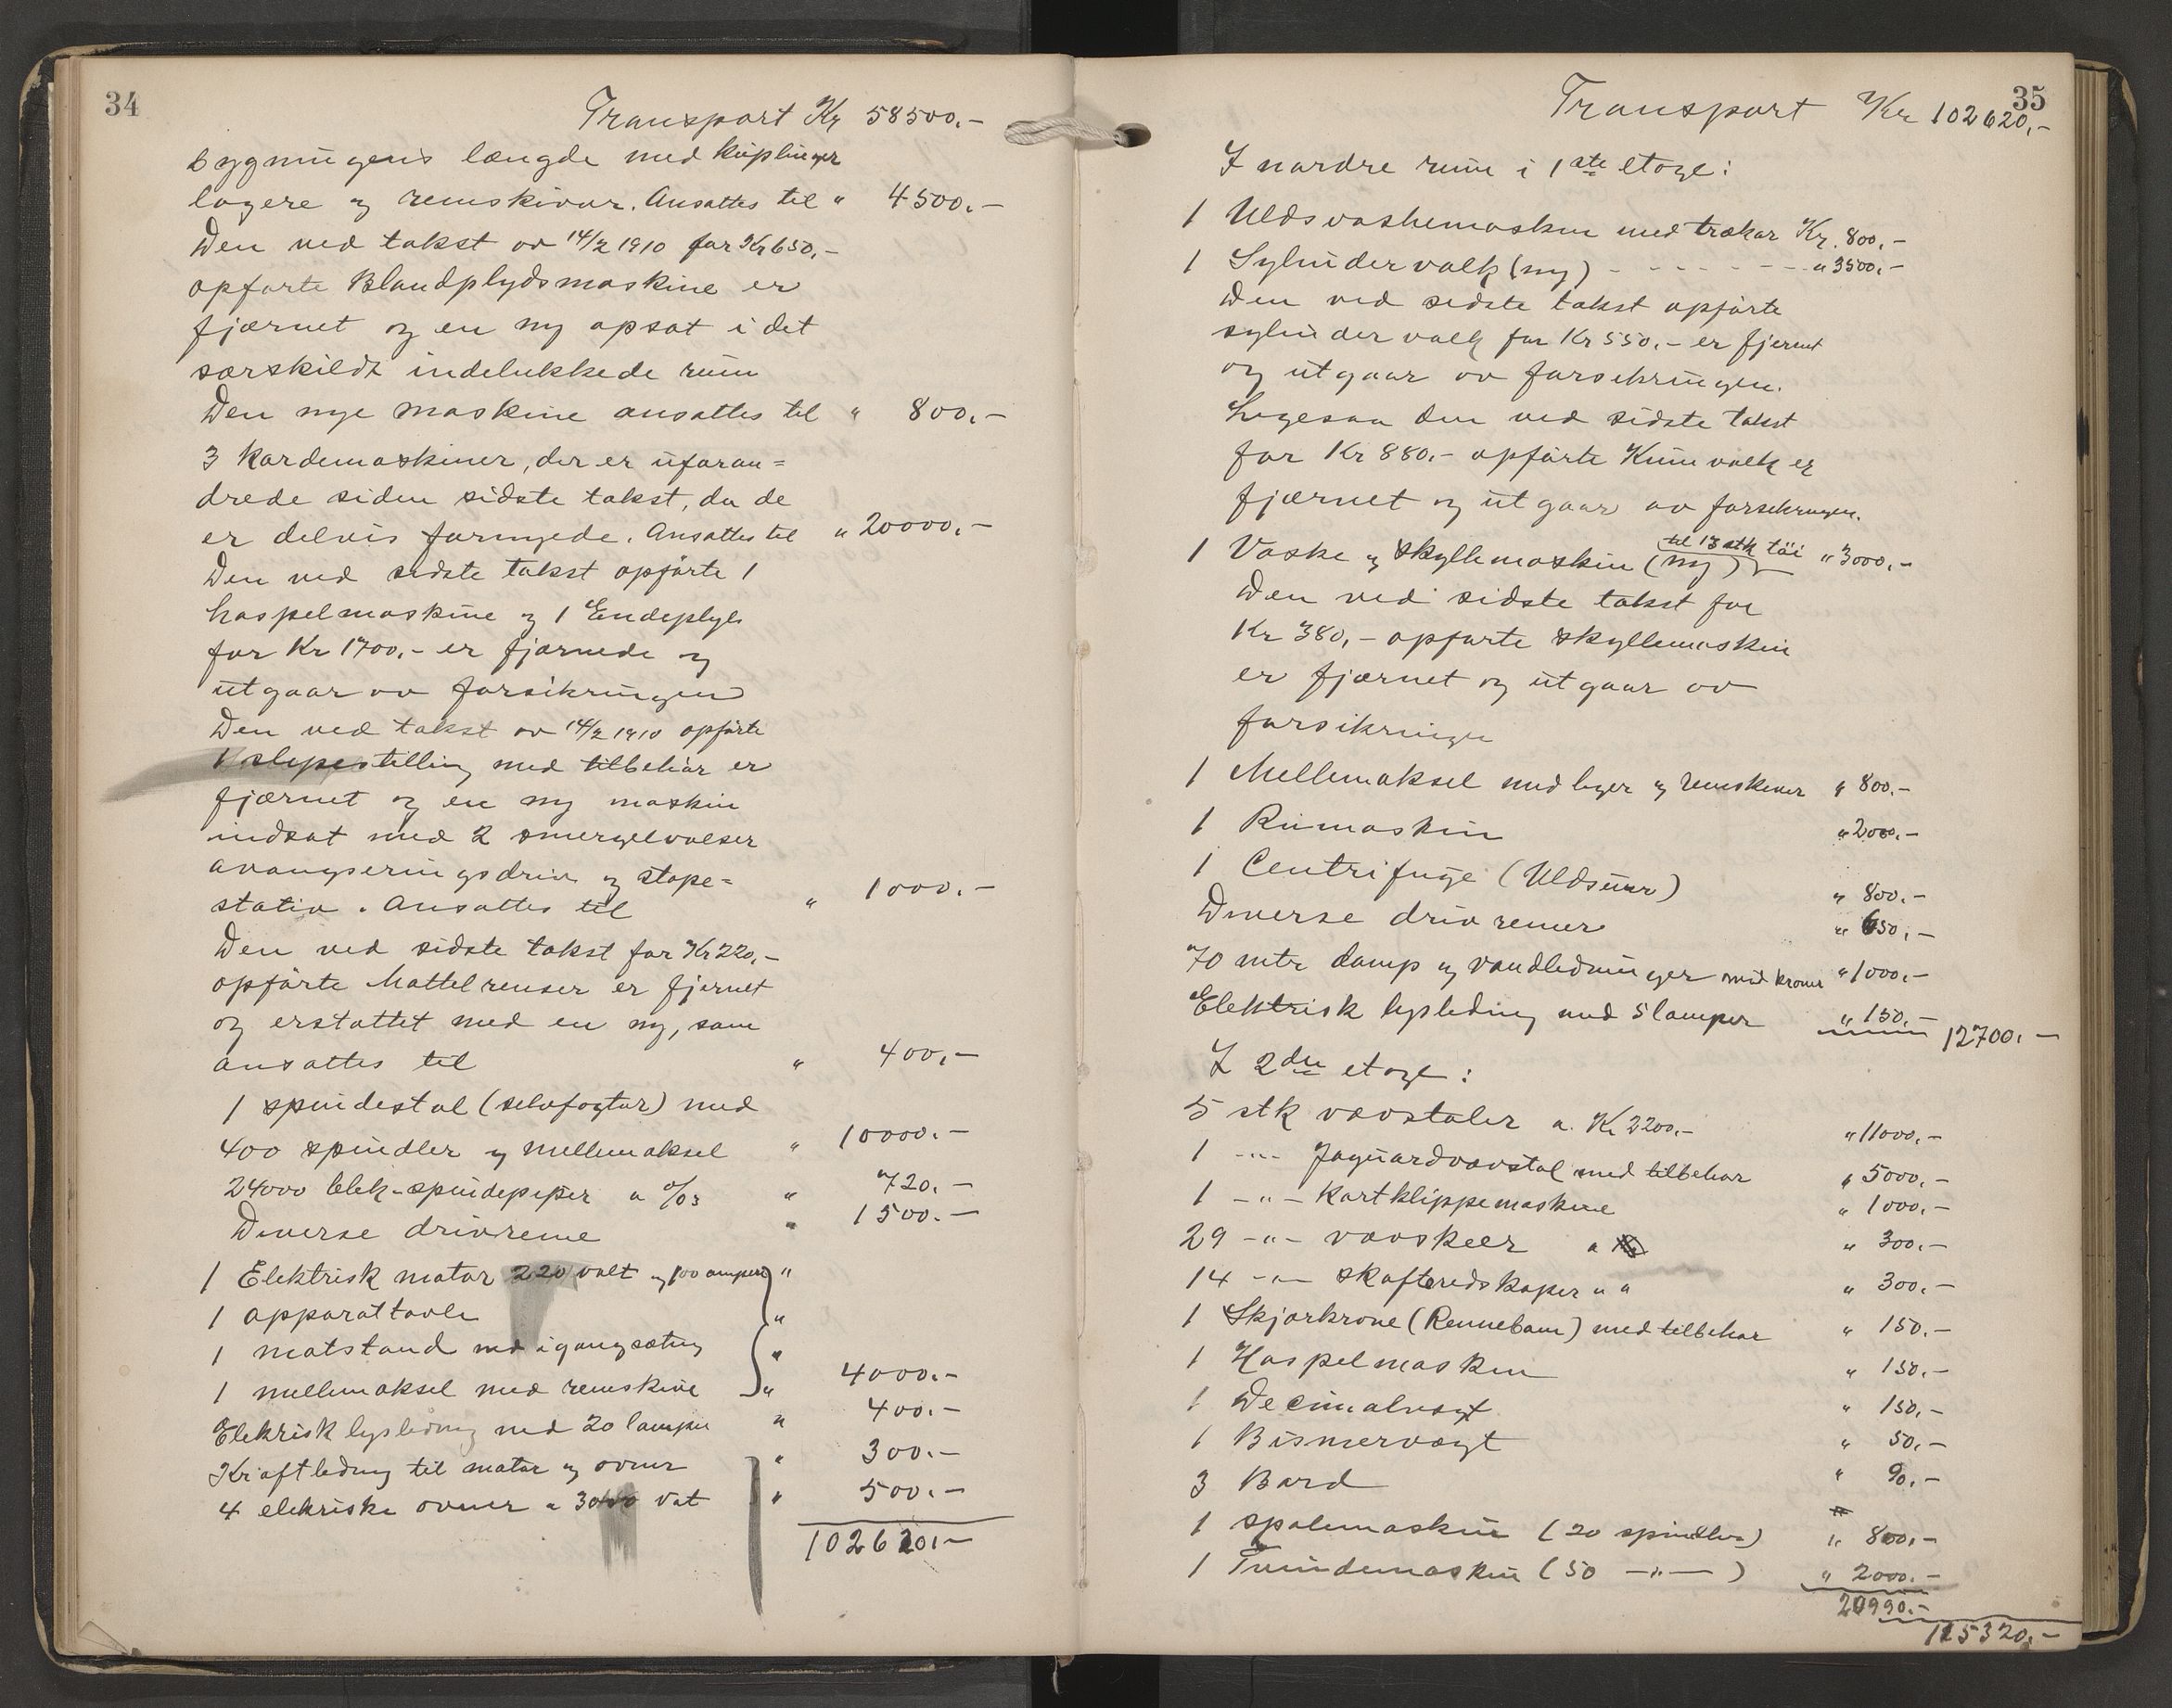 34
Transport Kr 58500.-
bygningens længde med kuplinger
lagere og remskiver. Ansattes til " 4500.-
Den ved takst av 14/2 1910 for Kr 650,-
opførte Blandplydsmaskine er
fjærnet og en ny opsat i det
særskildt indelukkede rum
Den nye maskine ansattes til " 800,-
3 Kardemaskiner, der er uforan=
drede siden sidste takst, da de
er delvis fornyede. Ansattes til " 20000,-
Den ved sidste takst opførte 1
haspelmaskine og 1 Endeplyds
for Kr 1700,- er fjærnede og
utgaar av forsikringen
Den ved takst av 14/2 1910 opførte
1 slipestilling med tilbehør er
fjærnet og en ny maskin
indsat med 2 smergelvalser
avangseringsdriv og slipe=
stativ. Ansattes til " 1000.-
Den ved sidste takst for Kr 220,-
opførte Mattelrenser er fjernet
og erstattet med en ny, som
ansattes til " 400,-
1 spindestol (selvfagtor) med
400 spindler og mellemaksel " 10000.-
24000 blek-spindepiper a 0/03 " 720.-
Diverse drivreme " 1500.-
1 Elektrisk motor 220 volt og 100 ampere "
1 apparattavle "
1 motstand med igangsætning "
1 mellemaksel med remskive " 4000.-
Elekrisk lysledning med 20 lamper " 400.-
Kraftledning til motor og ovner " 300.-
4 elekriske ovner a 3000 Vat " 500.-
102620,-
35
Transport Kr 102620,-
I nordre rum i 1ste etage:
1 Uldsvaskemaskin med trækar Kr. 800,-
1 Sylindervalk (ny) - - - - - - - " 3500,-
Den ved sidste takst opførte
sylindervalk for Kr 550.- er fjernet
og utgaar av forsikringen.
Ligesaa den ved sidste takst
for Kr 880.- opførte Kumvalk er
fjærnet og utgaar av forsikringen.
til 13 stk töi
1 Vaske og skyllemaskin (ny) " 3000,-
Den ved sidste takst for
Kr 380,- opførte skyllemaskin
er fjærnet og utgaar av
forsikringen
1 Mellemaksel med lager og remskiver " 800.-
1 Rumaskin " 2000,-
1 Centrifuge (Uldsurr) " 800.-
Diverse drivremer " 650,-
70 mtr damp og vandledninger med kraner " 1000,-
Elektrisk lysledning med 5 lamper " 150,- 12700.-
I 2den etage:
5 stk vævstoler a. Kr 2200,- " 11000,-
1 -"- Jaquardvævstol med tilbehør " 5000,-
1 -"- Kartklippemaskine " 1000,-
29 -"- vævskeer a " 300,-
14 -"- skaftredskaper " " " 300,-
1 Skjærkrone (Rennebom) med tilbehør " 150,-
1 Haspelmaskin " 150,-
1 Decimalvegt " 150,-
1 Bismervægt " 50,-
3 Bord " 90,-
1 spolemaskin (20 spindler) " 800,-
1 Tvindemaskin (50 -"-) " 2000.-
20990.-
115320,-